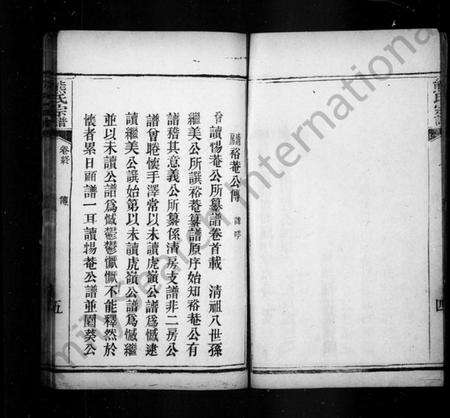 熊氏宗譜
四
清房裕菴公傳
曾讀惕菴公所纂譜卷首載 清祖八世孫
繼美公所譔裕菴纂譜原序始知裕菴公有
譜稽其意義公所纂係清房支譜非二房公
譜曾睠懷手澤常以未讀虎嶺公譜爲憾逮
讀繼美公譔始第以未讀虎嶺公譜爲憾繼
並以未讀公譜爲憾鬱鬱懨懨不能釋然於
懷者累日頭譜一耳讀惕菴公譜並園葵公
熊氏宗譜
卷終
傳
五
International